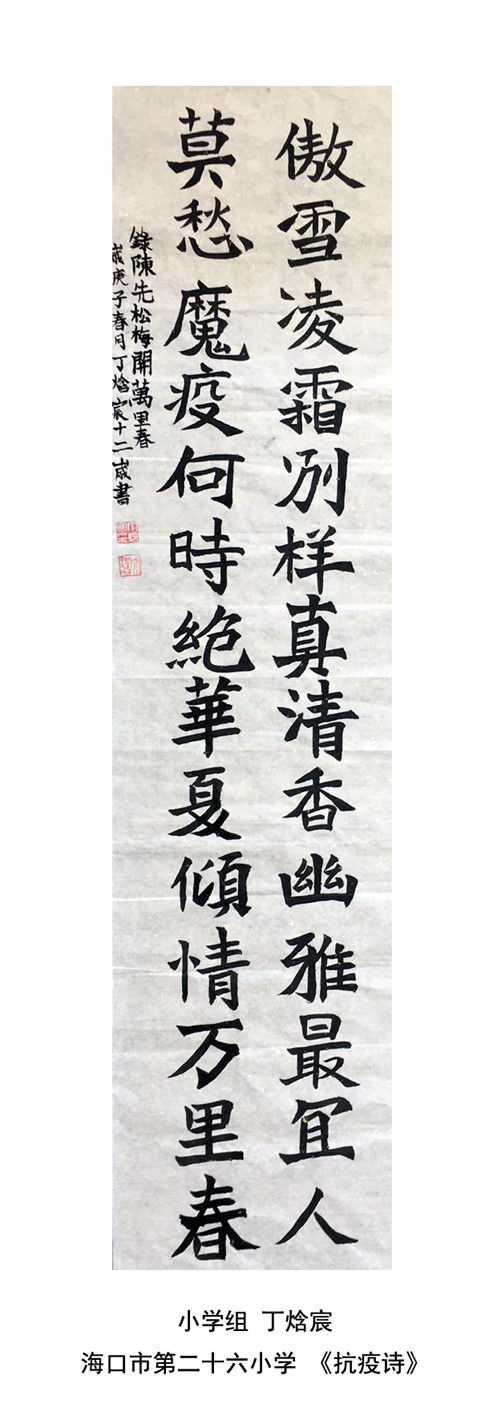 傲雪凌霜别样真清香幽雅最宜人
莫愁魔疫何時絶華夏傾情万里春
錄陳先松梅開萬里春
歲庚子春月丁焓宸十二歲書
小学组 丁焓宸
海口市第二十六小学 《抗疫诗》